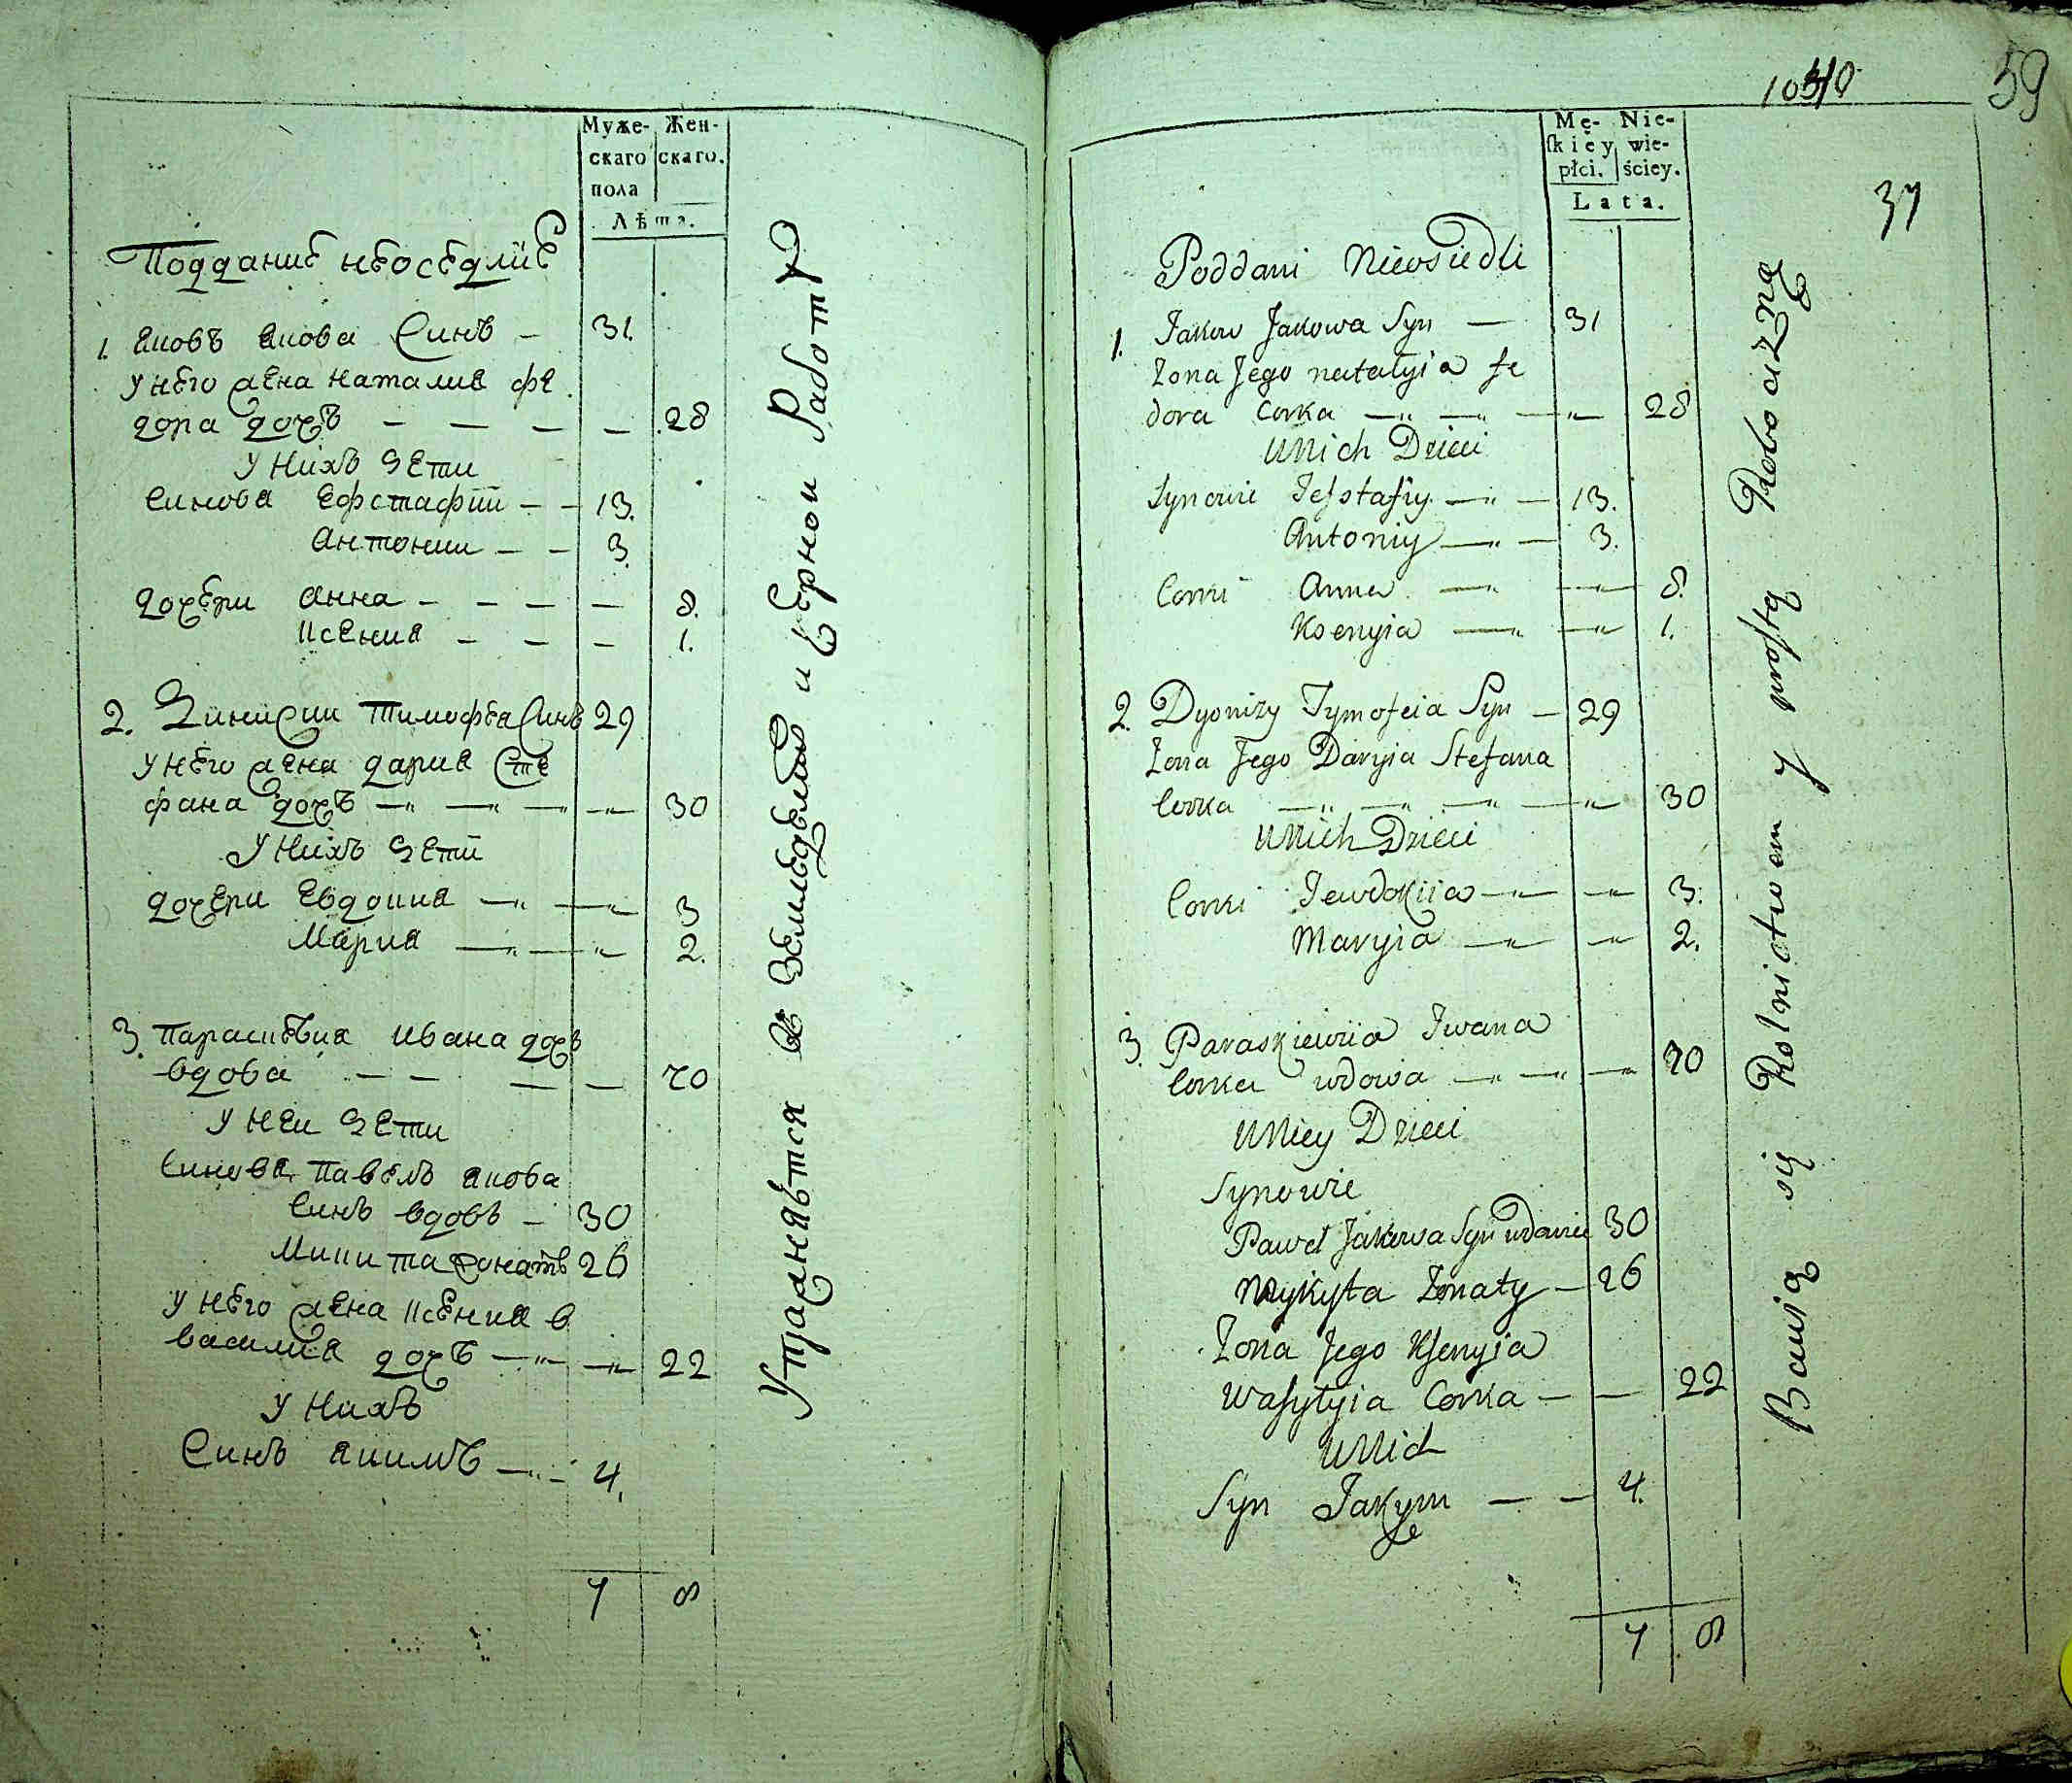 Муже- Жен-
скаго скаго.
пола
Лѣта.
Поддание неоседлие
1. Яковъ Якова Синъ — 31.
у него жена наталия фе
дора дочъ — — — — 28
У нихъ дети
Синовя Ефстафии — — 13.
Антонии — — 3.
дочери Анна — — — — 8.
Ксения — — — 1.
2. Дининсии Тимофея Синъ 29
у него жена дария Сте
фана дочъ —„ —„ —„ —„ 30
У нихъ дети
дочери Евдокия —„ —„ 3
Мария —„ —„ 2.
3. Параскевия Ивана дочъ
вдова — — — — 70
У неи дети
Синовя Павелъ Якова
Синъ вдовъ — 30
Микита жонатъ 26
у него жена Ксения в
василия дочъ —„ —„ 22
У нихъ
Синъ Якимъ —„— 4.
7 8
Упражняются въ Земледелии и Черной Работѣ
10340
59
37
Mę- Nie-
ſkiey wie-
płci. ściey.
Lata.
Poddani Nieosiedli
1. Jakow Jakowa Syn — 31
Zona Jego natalyia fe
dora Corka —„ —„ —„ 28
U Nich Dzieci
Synowie Jefstafiy —„ — 13.
Antoniy —„ — 3.
Corki Anna —„ —„ 8.
Ksenyia —„ —„ 1.
2. Dyonizy Tymofeia Syn — 29
Zona Jego Daryia Stefana
Corka —„ —„ —„ —„ 30
U Nich Dzieci
Corki Jewdokiia —„ —„ 3.
Maryia —„ —„ 2.
3. Paraskiewiia Iwana
Corka wdowa —„ —„ —„ 70
U Niey Dzieci
Synowie
Paweł Jakowa Syn wdowiec 30
Mykyta Zonaty — 26
Zona Jego Kſenyia
Waſylyia Corka — — 22
U Nich
Syn Jakym — — 4.
7 8
Bawią się Rolnictwem y prostą Robocizną